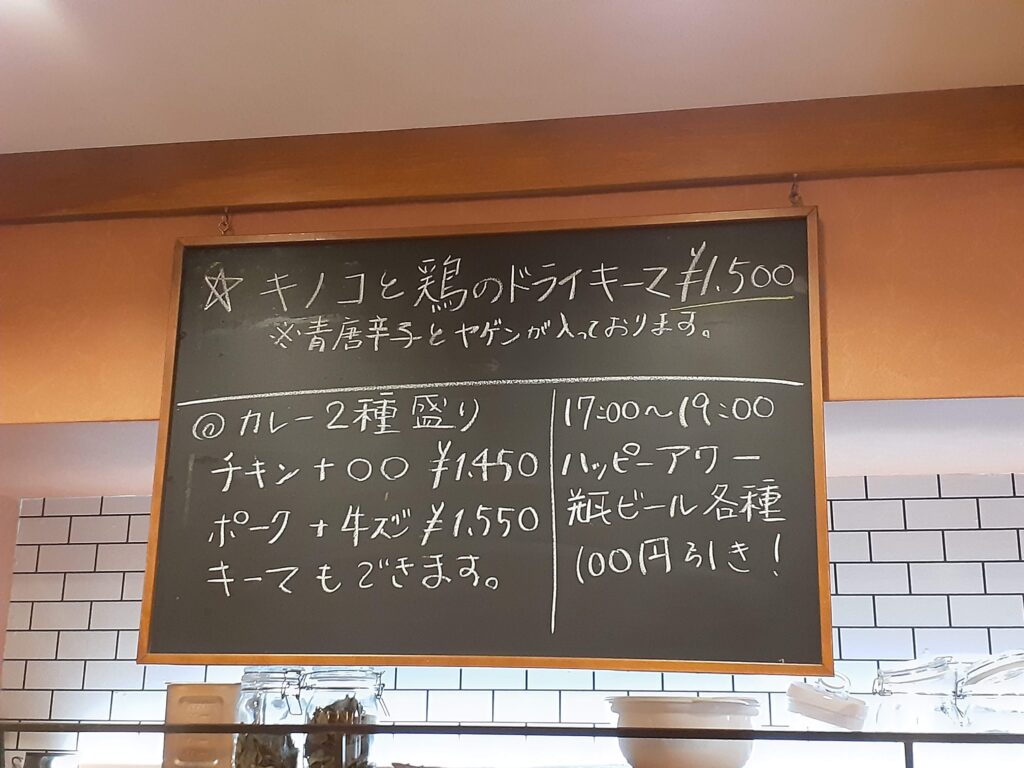 ☆ キノコと鶏のドライキーマ ¥1.500
※青唐辛子とヤゲンが入っております。
◎カレー2種盛り
チキン+〇〇 ¥1.450
ポーク+牛スジ ¥1.550
キーマもできます。
17:00～19:00
ハッピーアワー
瓶ビール各種
100円引き!